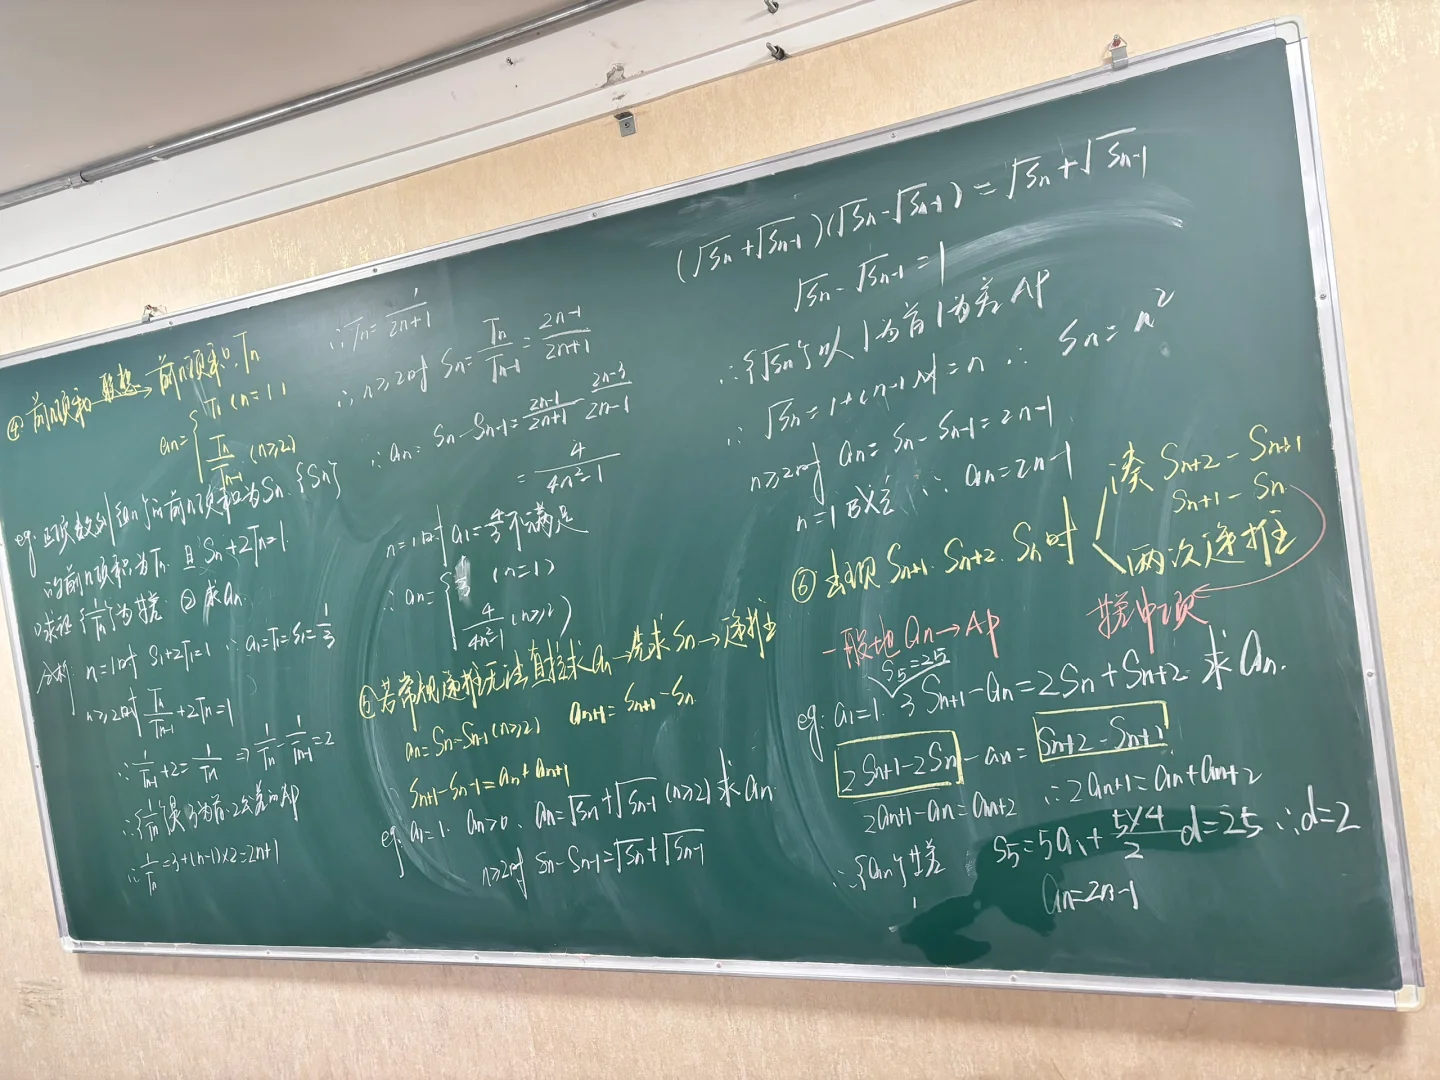 ④ 前n项和 联想→ 前n项积Tn
an={T1 (n=1)
Tn/Tn-1 (n≥2)
eg: 正项数列{an}的前n项和为Sn. {Sn}
的前n项积为Tn. 且Sn+2Tn=1.
①求证{1/Tn}为等差 ②求an
分析: n=1时 S1+2T1=1 ∴a1=T1=S1=1/3
n≥2时 Tn/Tn-1+2Tn=1
∴1/Tn-1+2=1/Tn ⇒ 1/Tn-1/Tn-1=2
∴{1/Tn}是3为首.2公差的AP
∴1/Tn=3+(n-1)×2=2n+1
∴Tn=1/2n+1
∴n≥2时 Sn=Tn/Tn-1=2n-1/2n+1
∴an=Sn-Sn-1=2n-1/2n+1-2n-3/2n-1
=4/4n²-1
n=1时 a1=4/3不满足
∴an={1/3 (n=1)
4/4n²-1 (n≥2)
⑤若常规递推无法直接求an→先求Sn→递推
an=Sn-Sn-1(n≥2) an+1=Sn+1-Sn
Sn+1-Sn-1=an+an+1
eg. a1=1. an>0. an=√Sn+√Sn-1 (n≥2) 求an.
n≥2时 Sn-Sn-1=√Sn+√Sn-1
(√Sn+√Sn-1)(√Sn-√Sn-1)=√Sn+√Sn-1
√Sn-√Sn-1=1
∴{√Sn}以1为首1为差AP
∴√Sn=1+(n-1)×1=n ∴ Sn=n²
n≥2时 an=Sn-Sn-1=2n-1
n=1时 ∴an=2n-1
⑥出现Sn+1. Sn+2. Sn时
凑 Sn+2-Sn+1
Sn+1-Sn
两次递推
一般地an→AP
等差中项
S5=25
eg. a1=1. 3Sn+1-an=2Sn+Sn+2. 求an.
2Sn+1-2Sn-an=Sn+2-Sn+1
2an+1-an=an+2 ∴2an+1=an+an+2
∴{an}等差 S5=5a1+5×4/2 d=25 ∴d=2
an=2n-1